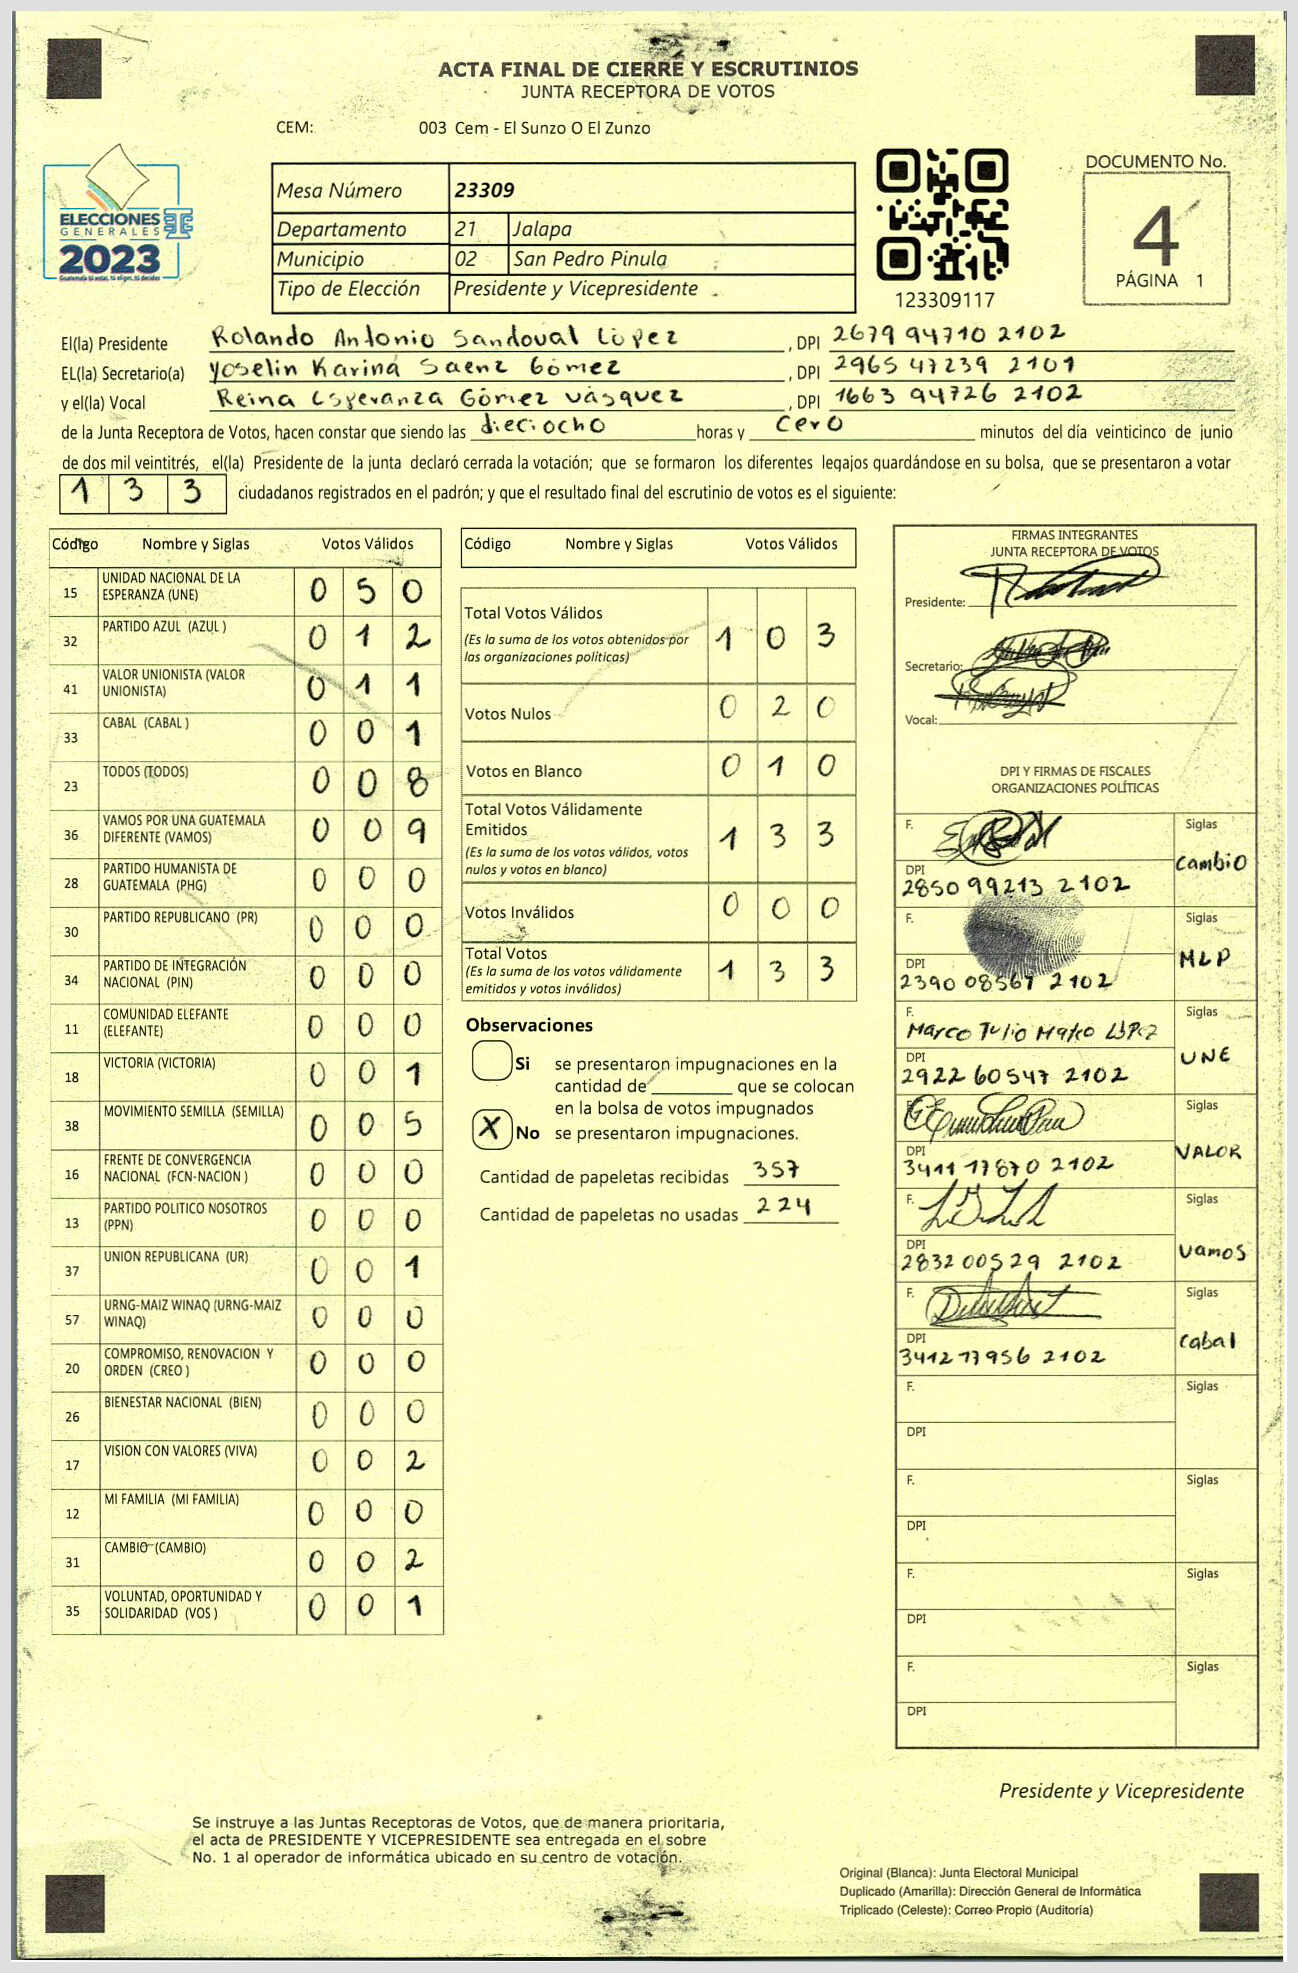 ACTA FINAL DE CIERRE Y ESCRUTINIOS
JUNTA RECEPTORA DE VOTOS
CEM: 003 Cem - El Sunzo O El Zunzo
ELECCIONES
GENERALES
2023
Guatemala tú estas, tú eliges, tú decides
Mesa Número 23309
Departamento 21 Jalapa
Municipio 02 San Pedro Pinula
Tipo de Elección Presidente y Vicepresidente
123309117
DOCUMENTO No.
4
PÁGINA 1
El(la) Presidente Rolando Antonio Sandoval Lòpez , DPI 2679 94710 2102
EL(la) Secretario(a) Yoselin Karina Saenz Gómez , DPI 2965 47239 2101
y el(la) Vocal Reina Esperanza Gómez Vásquez , DPI 1663 94726 2102
de la Junta Receptora de Votos, hacen constar que siendo las dieciocho horas y cero minutos del día veinticinco de junio
de dos mil veintitrés, el(la) Presidente de la junta declaró cerrada la votación; que se formaron los diferentes legajos guardándose en su bolsa, que se presentaron a votar
1 3 3 ciudadanos registrados en el padrón; y que el resultado final del escrutinio de votos es el siguiente:
Código Nombre y Siglas Votos Válidos
15 UNIDAD NACIONAL DE LA ESPERANZA (UNE) 0 5 0
32 PARTIDO AZUL (AZUL ) 0 1 2
41 VALOR UNIONISTA (VALOR UNIONISTA) 0 1 1
33 CABAL (CABAL ) 0 0 1
23 TODOS (TODOS) 0 0 8
36 VAMOS POR UNA GUATEMALA DIFERENTE (VAMOS) 0 0 9
28 PARTIDO HUMANISTA DE GUATEMALA (PHG) 0 0 0
30 PARTIDO REPUBLICANO (PR) 0 0 0
34 PARTIDO DE INTEGRACIÓN NACIONAL (PIN) 0 0 0
11 COMUNIDAD ELEFANTE (ELEFANTE) 0 0 0
18 VICTORIA (VICTORIA) 0 0 1
38 MOVIMIENTO SEMILLA (SEMILLA) 0 0 5
16 FRENTE DE CONVERGENCIA NACIONAL (FCN-NACION ) 0 0 0
13 PARTIDO POLITICO NOSOTROS (PPN) 0 0 0
37 UNION REPUBLICANA (UR) 0 0 1
57 URNG-MAIZ WINAQ (URNG-MAIZ WINAQ) 0 0 0
20 COMPROMISO, RENOVACION Y ORDEN (CREO ) 0 0 0
26 BIENESTAR NACIONAL (BIEN) 0 0 0
17 VISION CON VALORES (VIVA) 0 0 2
12 MI FAMILIA (MI FAMILIA) 0 0 0
31 CAMBIO (CAMBIO) 0 0 2
35 VOLUNTAD, OPORTUNIDAD Y SOLIDARIDAD (VOS ) 0 0 1
Código Nombre y Siglas Votos Válidos
Total Votos Válidos 1 0 3
(Es la suma de los votos obtenidos por
las organizaciones politicas)
Votos Nulos 0 2 0
Votos en Blanco 0 1 0
Total Votos Válidamente
Emitidos 1 3 3
(Es la suma de los votos válidos, votos
nulos y votos en blanco)
Votos Inválidos 0 0 0
Total Votos 1 3 3
(Es la suma de los votos válidamente
emitidos y votos inválidos)
Observaciones
Si se presentaron impugnaciones en la
cantidad de ________ que se colocan
en la bolsa de votos impugnados
X No se presentaron impugnaciones.
Cantidad de papeletas recibidas 357
Cantidad de papeletas no usadas 224
FIRMAS INTEGRANTES
JUNTA RECEPTORA DE VOTOS
Presidente:
Secretario:
Vocal:
DPI Y FIRMAS DE FISCALES
ORGANIZACIONES POLÍTICAS
F. Siglas
cambio
DPI
2850 99213 2102
F. Siglas
MLP
DPI
2390 08567 2102
F. Siglas
Marco Tulio
UNE
DPI
2922 60547 2102
F. Siglas
VALOR
DPI
3411 17870 2102
F. Siglas
vamos
DPI
2832 00529 2102
F. Siglas
cabal
DPI
3412 17956 2102
F. Siglas
DPI
F. Siglas
DPI
F. Siglas
DPI
F. Siglas
DPI
Presidente y Vicepresidente
Se instruye a las Juntas Receptoras de Votos, que de manera prioritaria,
el acta de PRESIDENTE Y VICEPRESIDENTE sea entregada en el sobre
No. 1 al operador de informática ubicado en su centro de votación.
Original (Blanca): Junta Electoral Municipal
Duplicado (Amarilla): Dirección General de Informática
Triplicado (Celeste): Correo Propio (Auditoría)